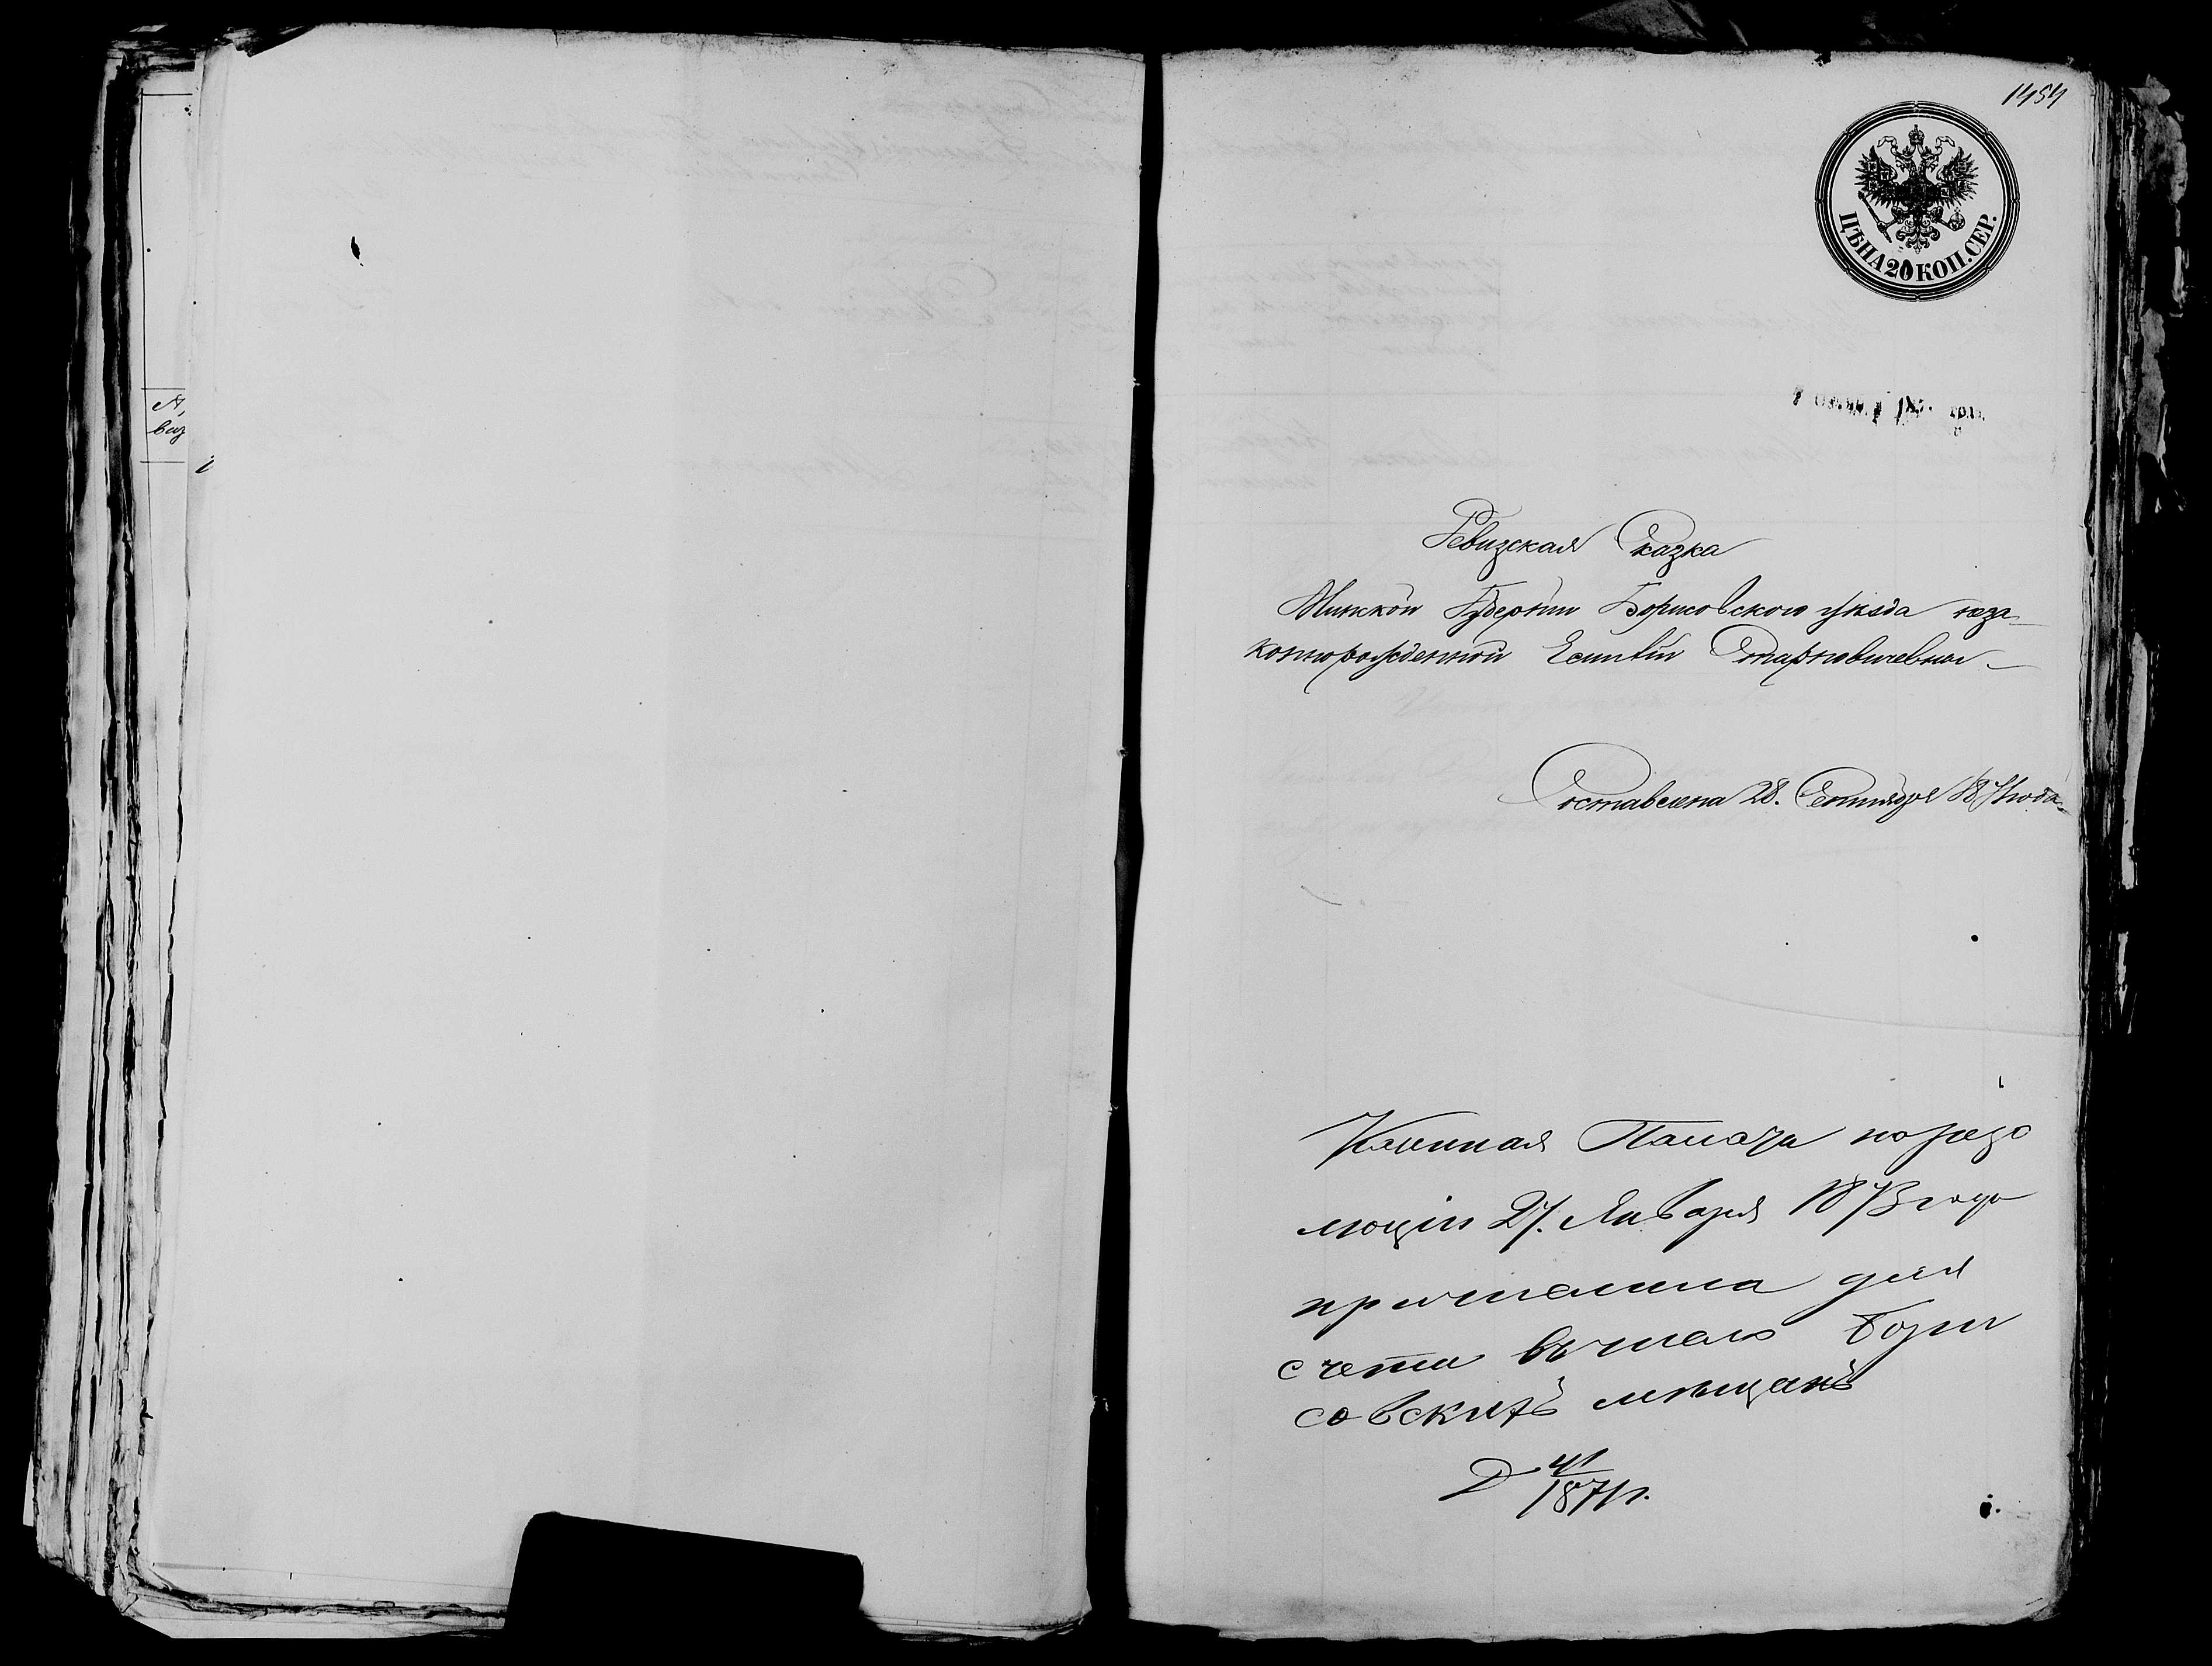 1454
ЦѢНА 20 КОП. СЕР.
Ревизская Сказка
Минской Губерніи Борисовского уѣзда неза-
коннорожденной
Составлена 28. Сентября
Казенная Палата по резо
люціи 27. Января 1873 года
для
счета въ числѣ Бори
совскихъ мѣщанъ
Д 41